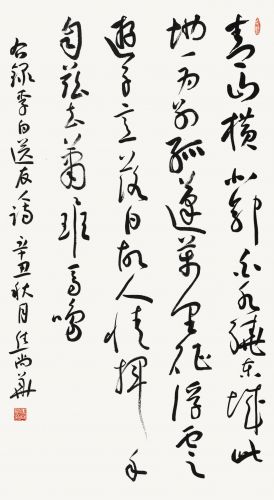 青山橫北郭白水繞東城此
地一为别孤蓬萬里征浮雲
遊子意落日故人情揮手
自兹去蕭班馬鳴
右録李白送友人詩 辛丑秋月 尚華